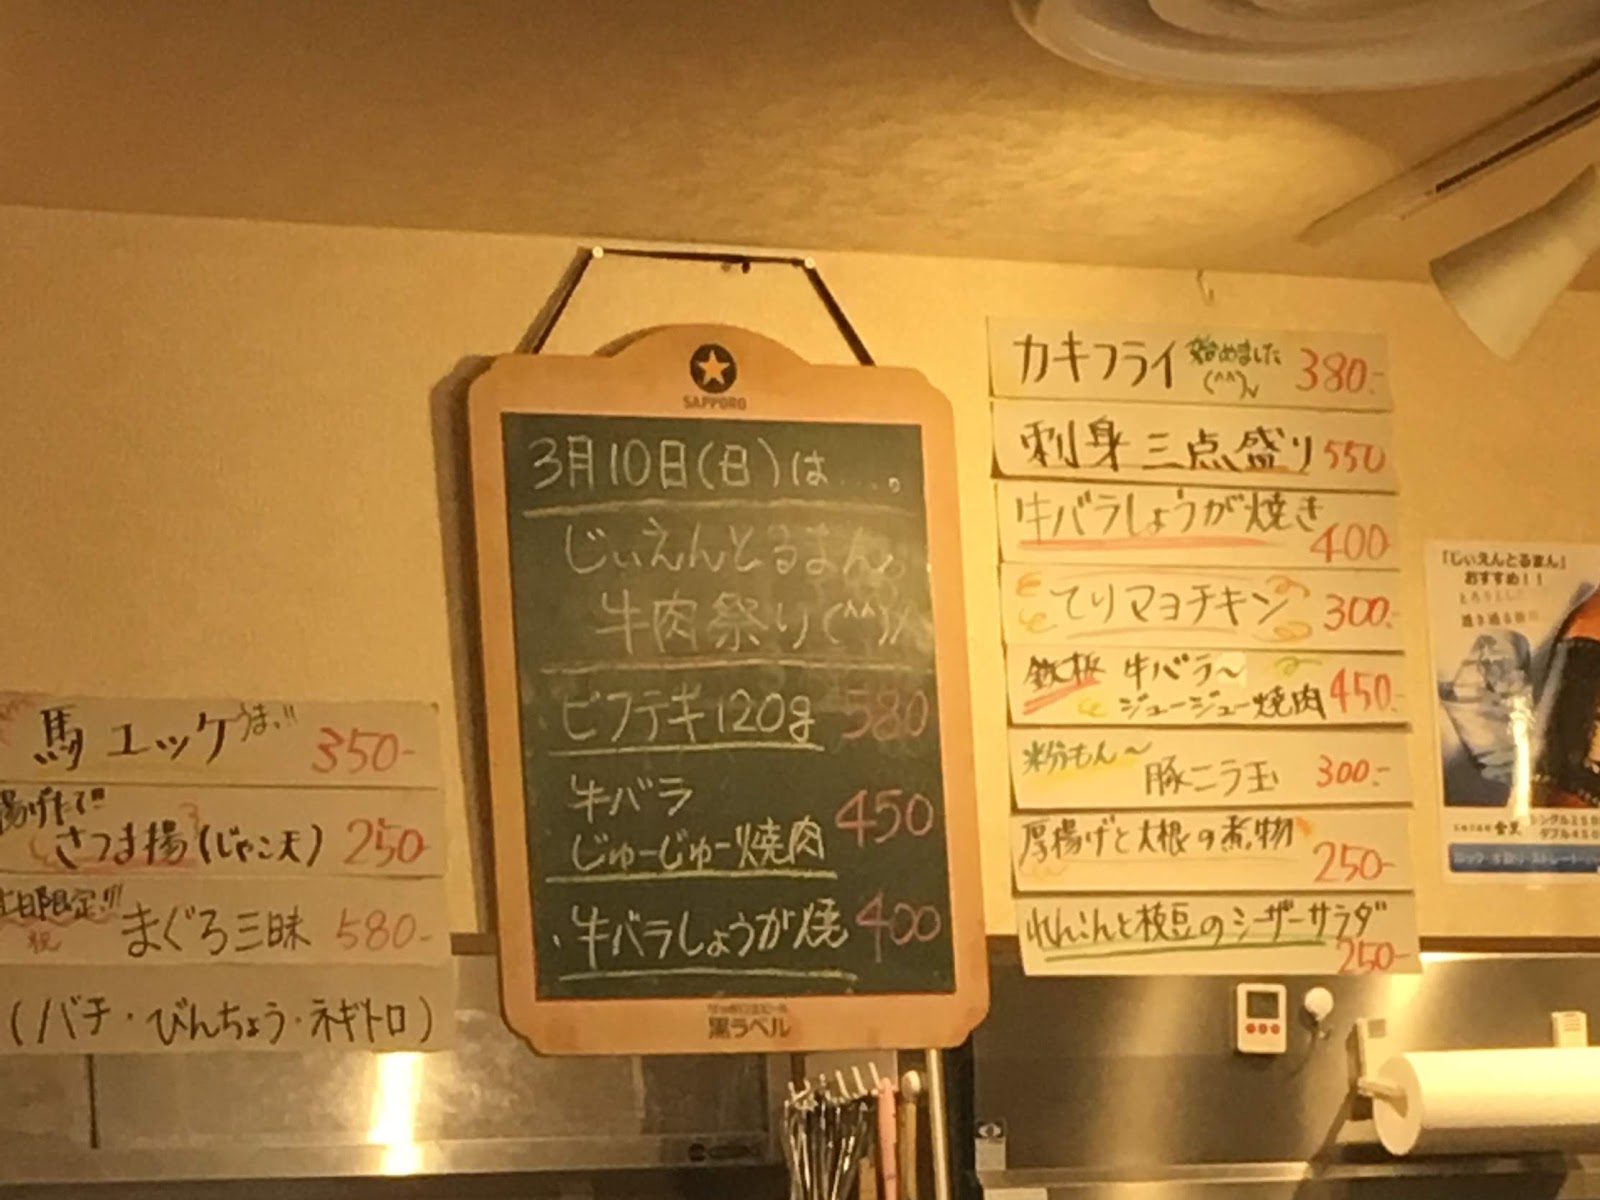 SAPPORO
3月10日(日)は....。
じぃえんとるまん
牛肉祭り(^^)/
ビフテキ120g 580
牛バラ
じゅーじゅー焼肉 450
・牛バラしょうが焼 400
黒ラベル
馬ユッケ うまい!! 350-
揚げたて!!
さつま揚(じゃこ天) 250-
限定!!!
祝 まぐろ三昧 580-
(バチ・びんちょう・ネギトロ)
カキフライ 始めました (^^)v 380.-
刺身 三点盛り 550
牛バラしょうが焼き 400
てりマヨチキン 300.-
鉄板 牛バラ〜
ジュージュー焼肉 450.-
粉もん〜
豚ニラ玉 300.-
厚揚げと大根の煮物 250-
れんこんと枝豆のシーザーサラダ 250-
「じぃえんとるまん」
おすすめ!!